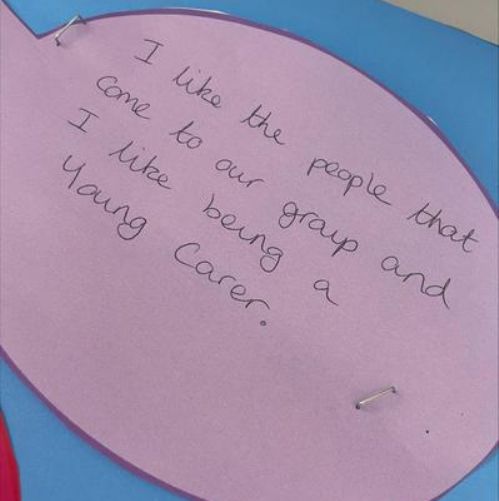 I like the people that
come to our group and
I like being a
Young Carer.